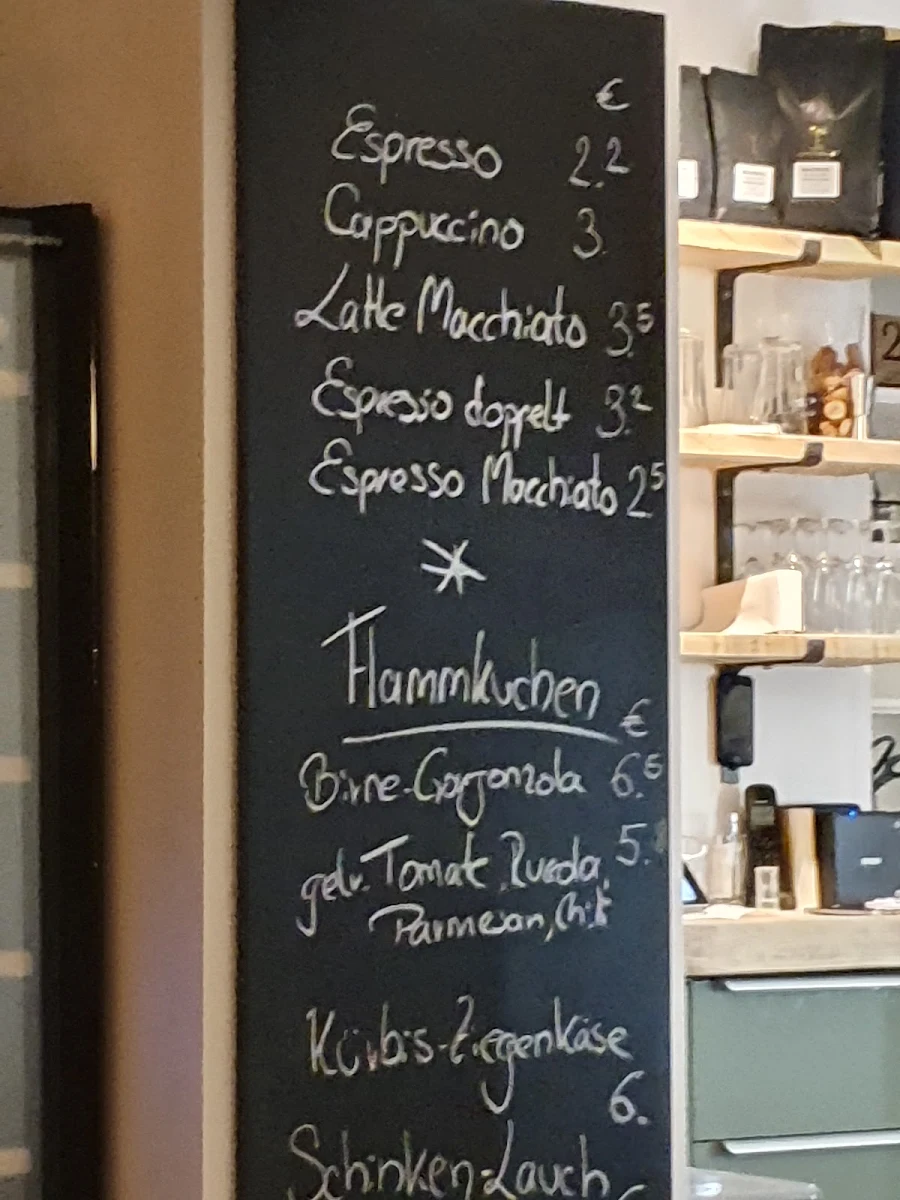 €
Espresso 2.2
Cappuccino 3.
Latte Macchiato 3.5
Espresso doppelt 3.2
Espresso Macchiato 2.5
Flammkuchen
€
Birne-Gorgonzola 6.5
getr. Tomate, Rucola, 5.
Parmesan, Chili
Kürbis-Ziegenkäse
6.
Schinken-Lauch
2